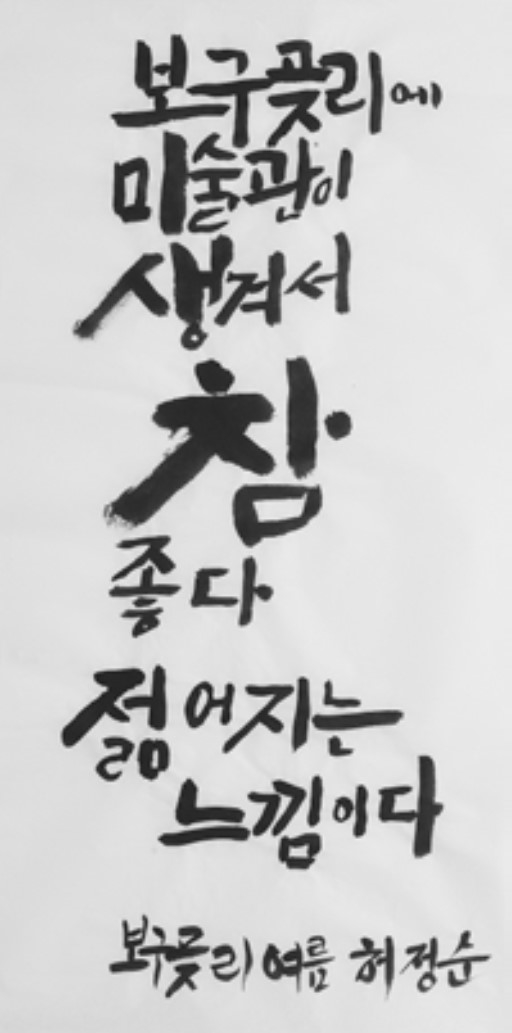 보구곶리에
미술관이
생겨서
참
좋다
젊어지는
느낌이다
보구곶리 여름 허정순